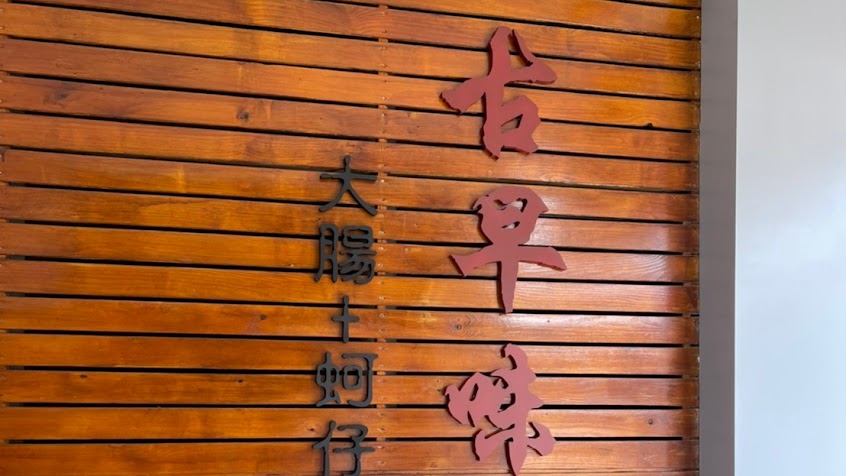 古早味
大腸+蚵仔